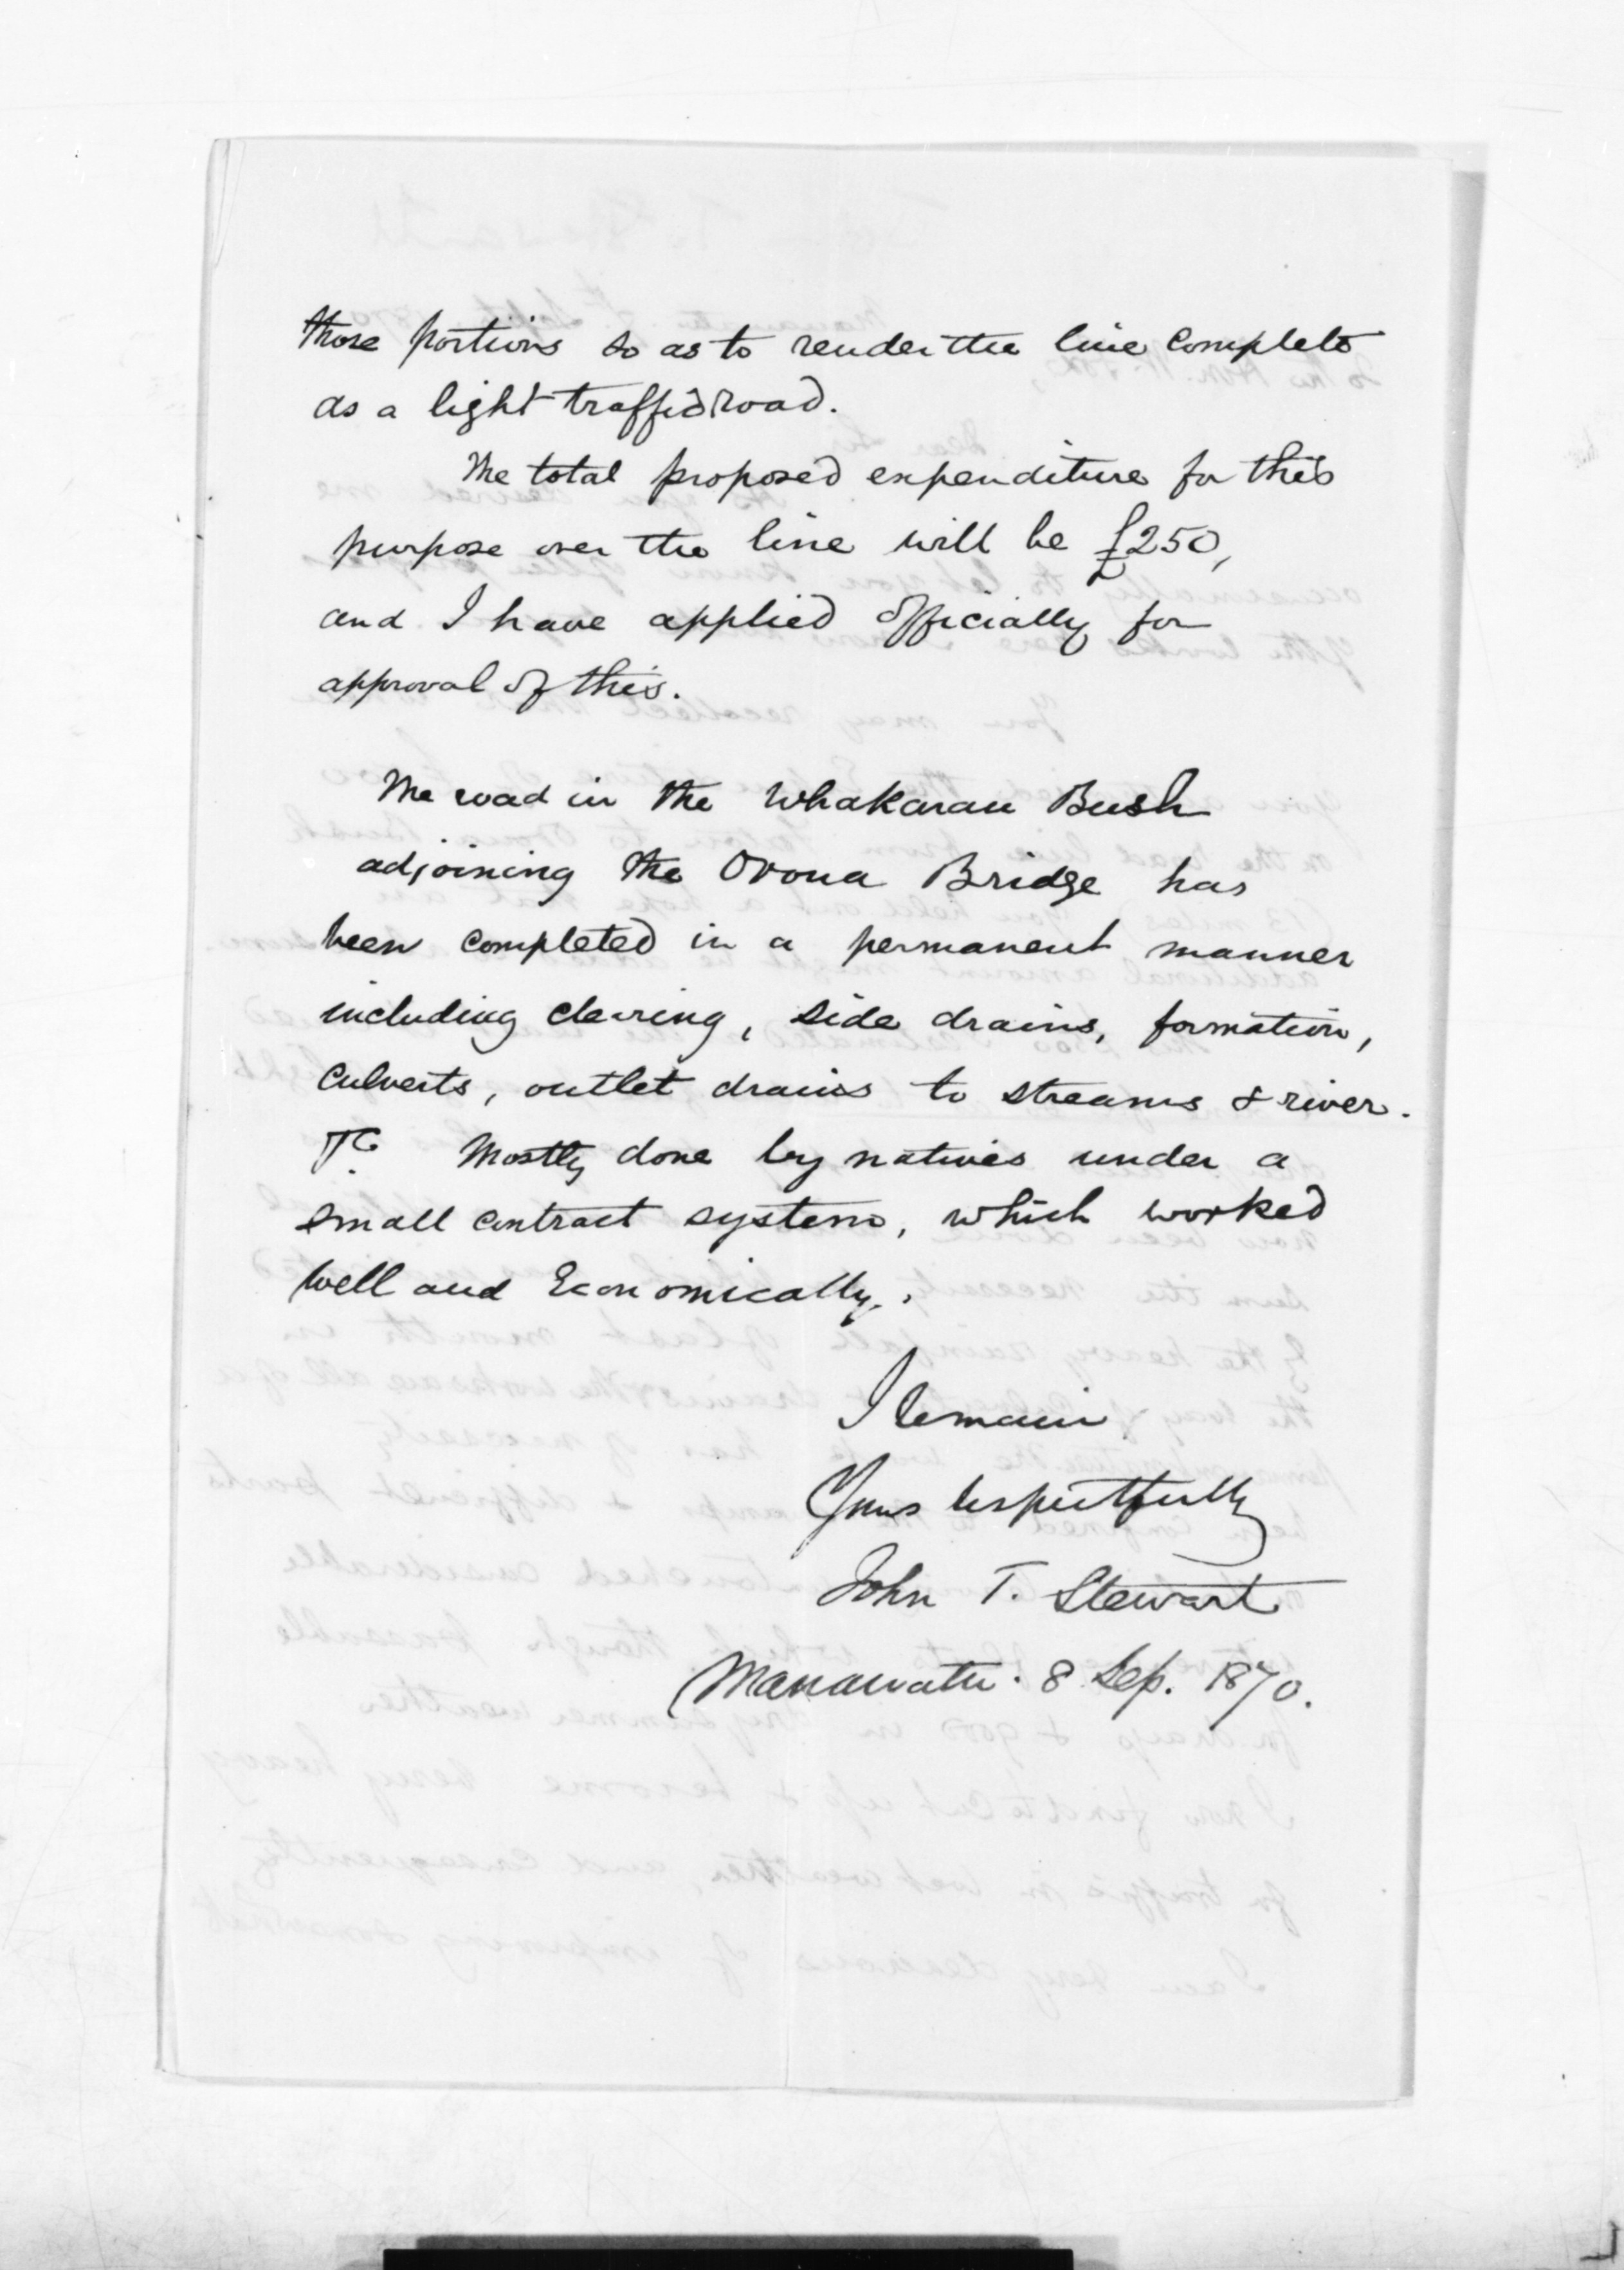 those portions so as to render the line complete
as a light traffic road.
The total proposed expenditure for this
purpose over the line will be £250,
and I have applied officially for
approval of this.
The road in the Whakarau Bush
adjoining the Oroua Bridge has
been completed in a permanent manner
including clearing, side drains, formation,
culverts, outlet drains to streams & river.
&c. Mostly done by natives under a
small contract system, which worked
well and Economically.
I remain
Yours respectfully
John T. Stewart
Manawatu. 8 Sep. 1870.